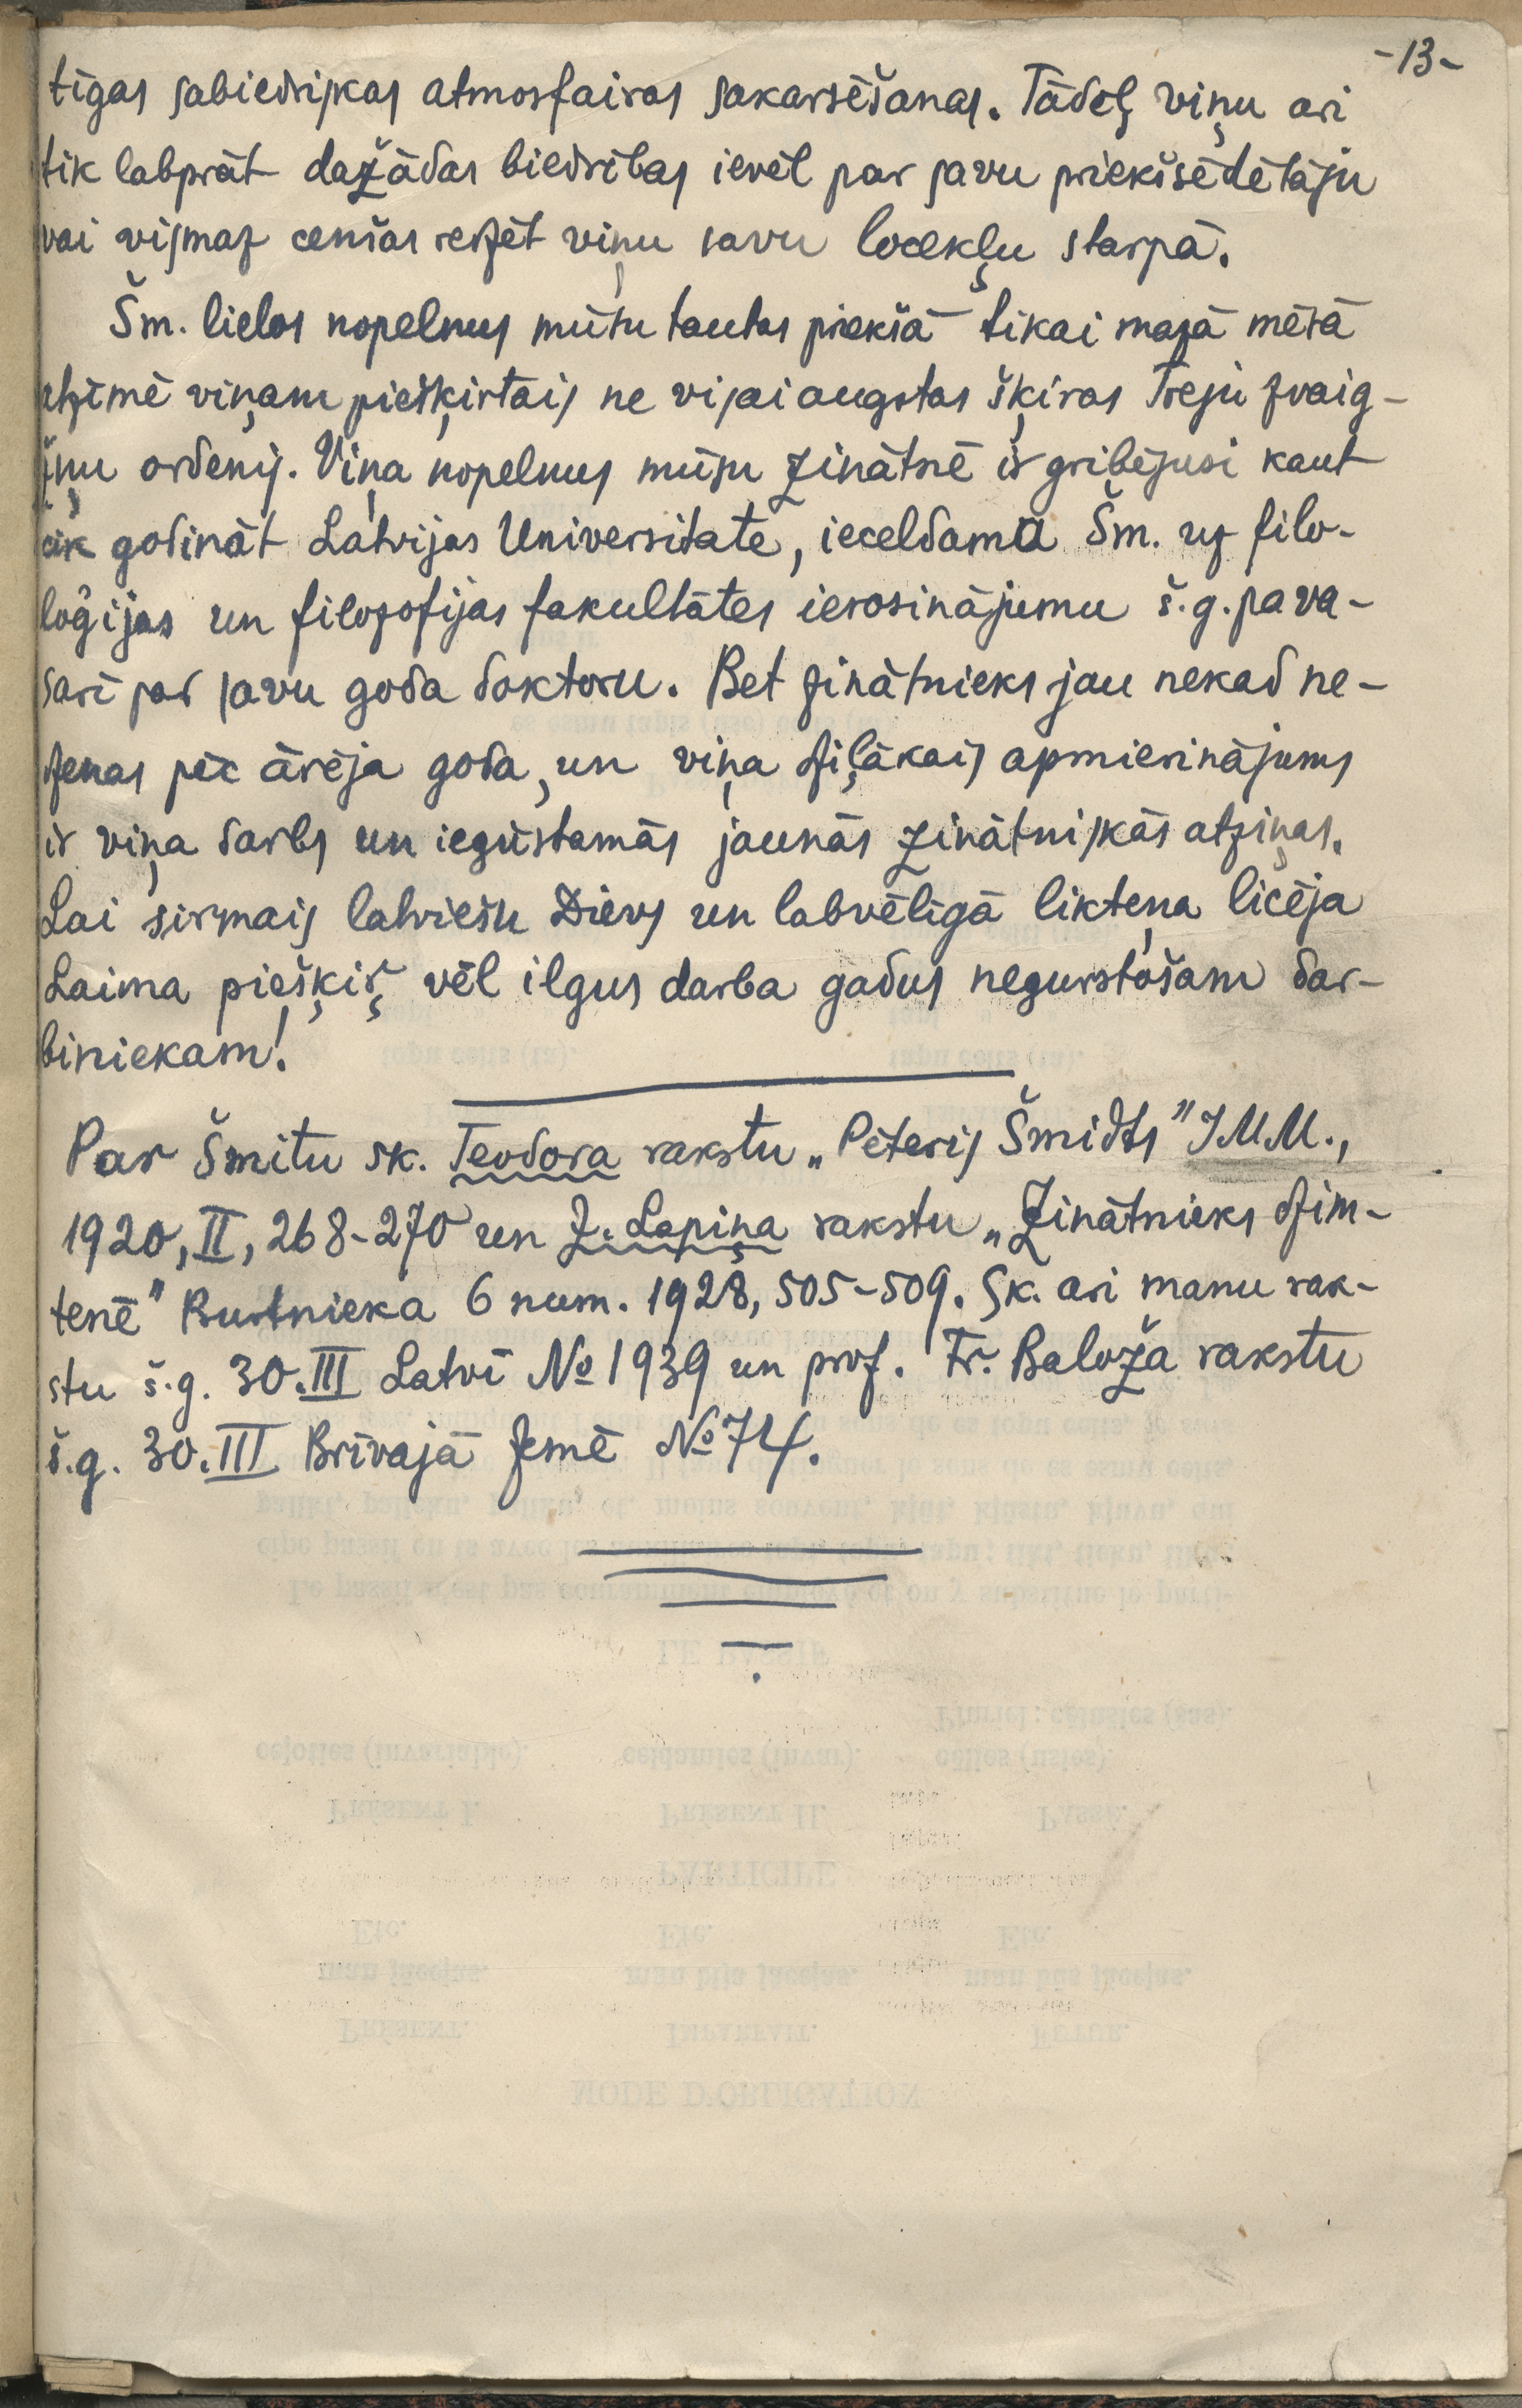 -13-
tīgas sabiedriskas atmosfairas sakarsēšanas. Tādeļ viņu ari
tik labprāt dažādas biedrības ievēl par savu priekšsēdētāju
vai vismaz cenšas redzēt viņu savu locekļu starpā.
Šm. lielos nopelnus mūsu tautas priekšā tikai mazā mērā
atzīmē viņam pieškirtais ne visai augstas šķiras Treju zvaig-
žņu ordenis. Viņa nopelnus mūsu zinātnē ir gribējusi kaut
cik godināt Latvijas Universitate, ieceldama Šm. uz filo-
loģijas un filozofijas fakultātes ierosinājumu š.g. pava-
sarī par savu goda doktoru. Bet zinātnieks jau nekad ne-
dzenas pēc ārēja goda, un viņa dziļākais apmierinājums
ir viņa darbs un iegūstamās jaunās zinātniskās atziņas.
Lai sirmais latviešu Dievs un labvēlīgā likteņa licēja
Laima piešķiŗ vēl ilgus darba gadus negurstošam dar-
biniekam!
Par Šmitu sk. Teodora rakstu „Pēteris Šmidts" IMM.,
1920, II, 268-270 un J. Lapiņa rakstu „Zinātnieks dzim-
tenē" Burtnieka 6 num. 1928, 505-509. Sk. ari manu rak-
stu š.g. 30.III Latvī № 1939 un prof. Fr. Baloža rakstu
š.g. 30.III Brīvajā Zemē № 74.